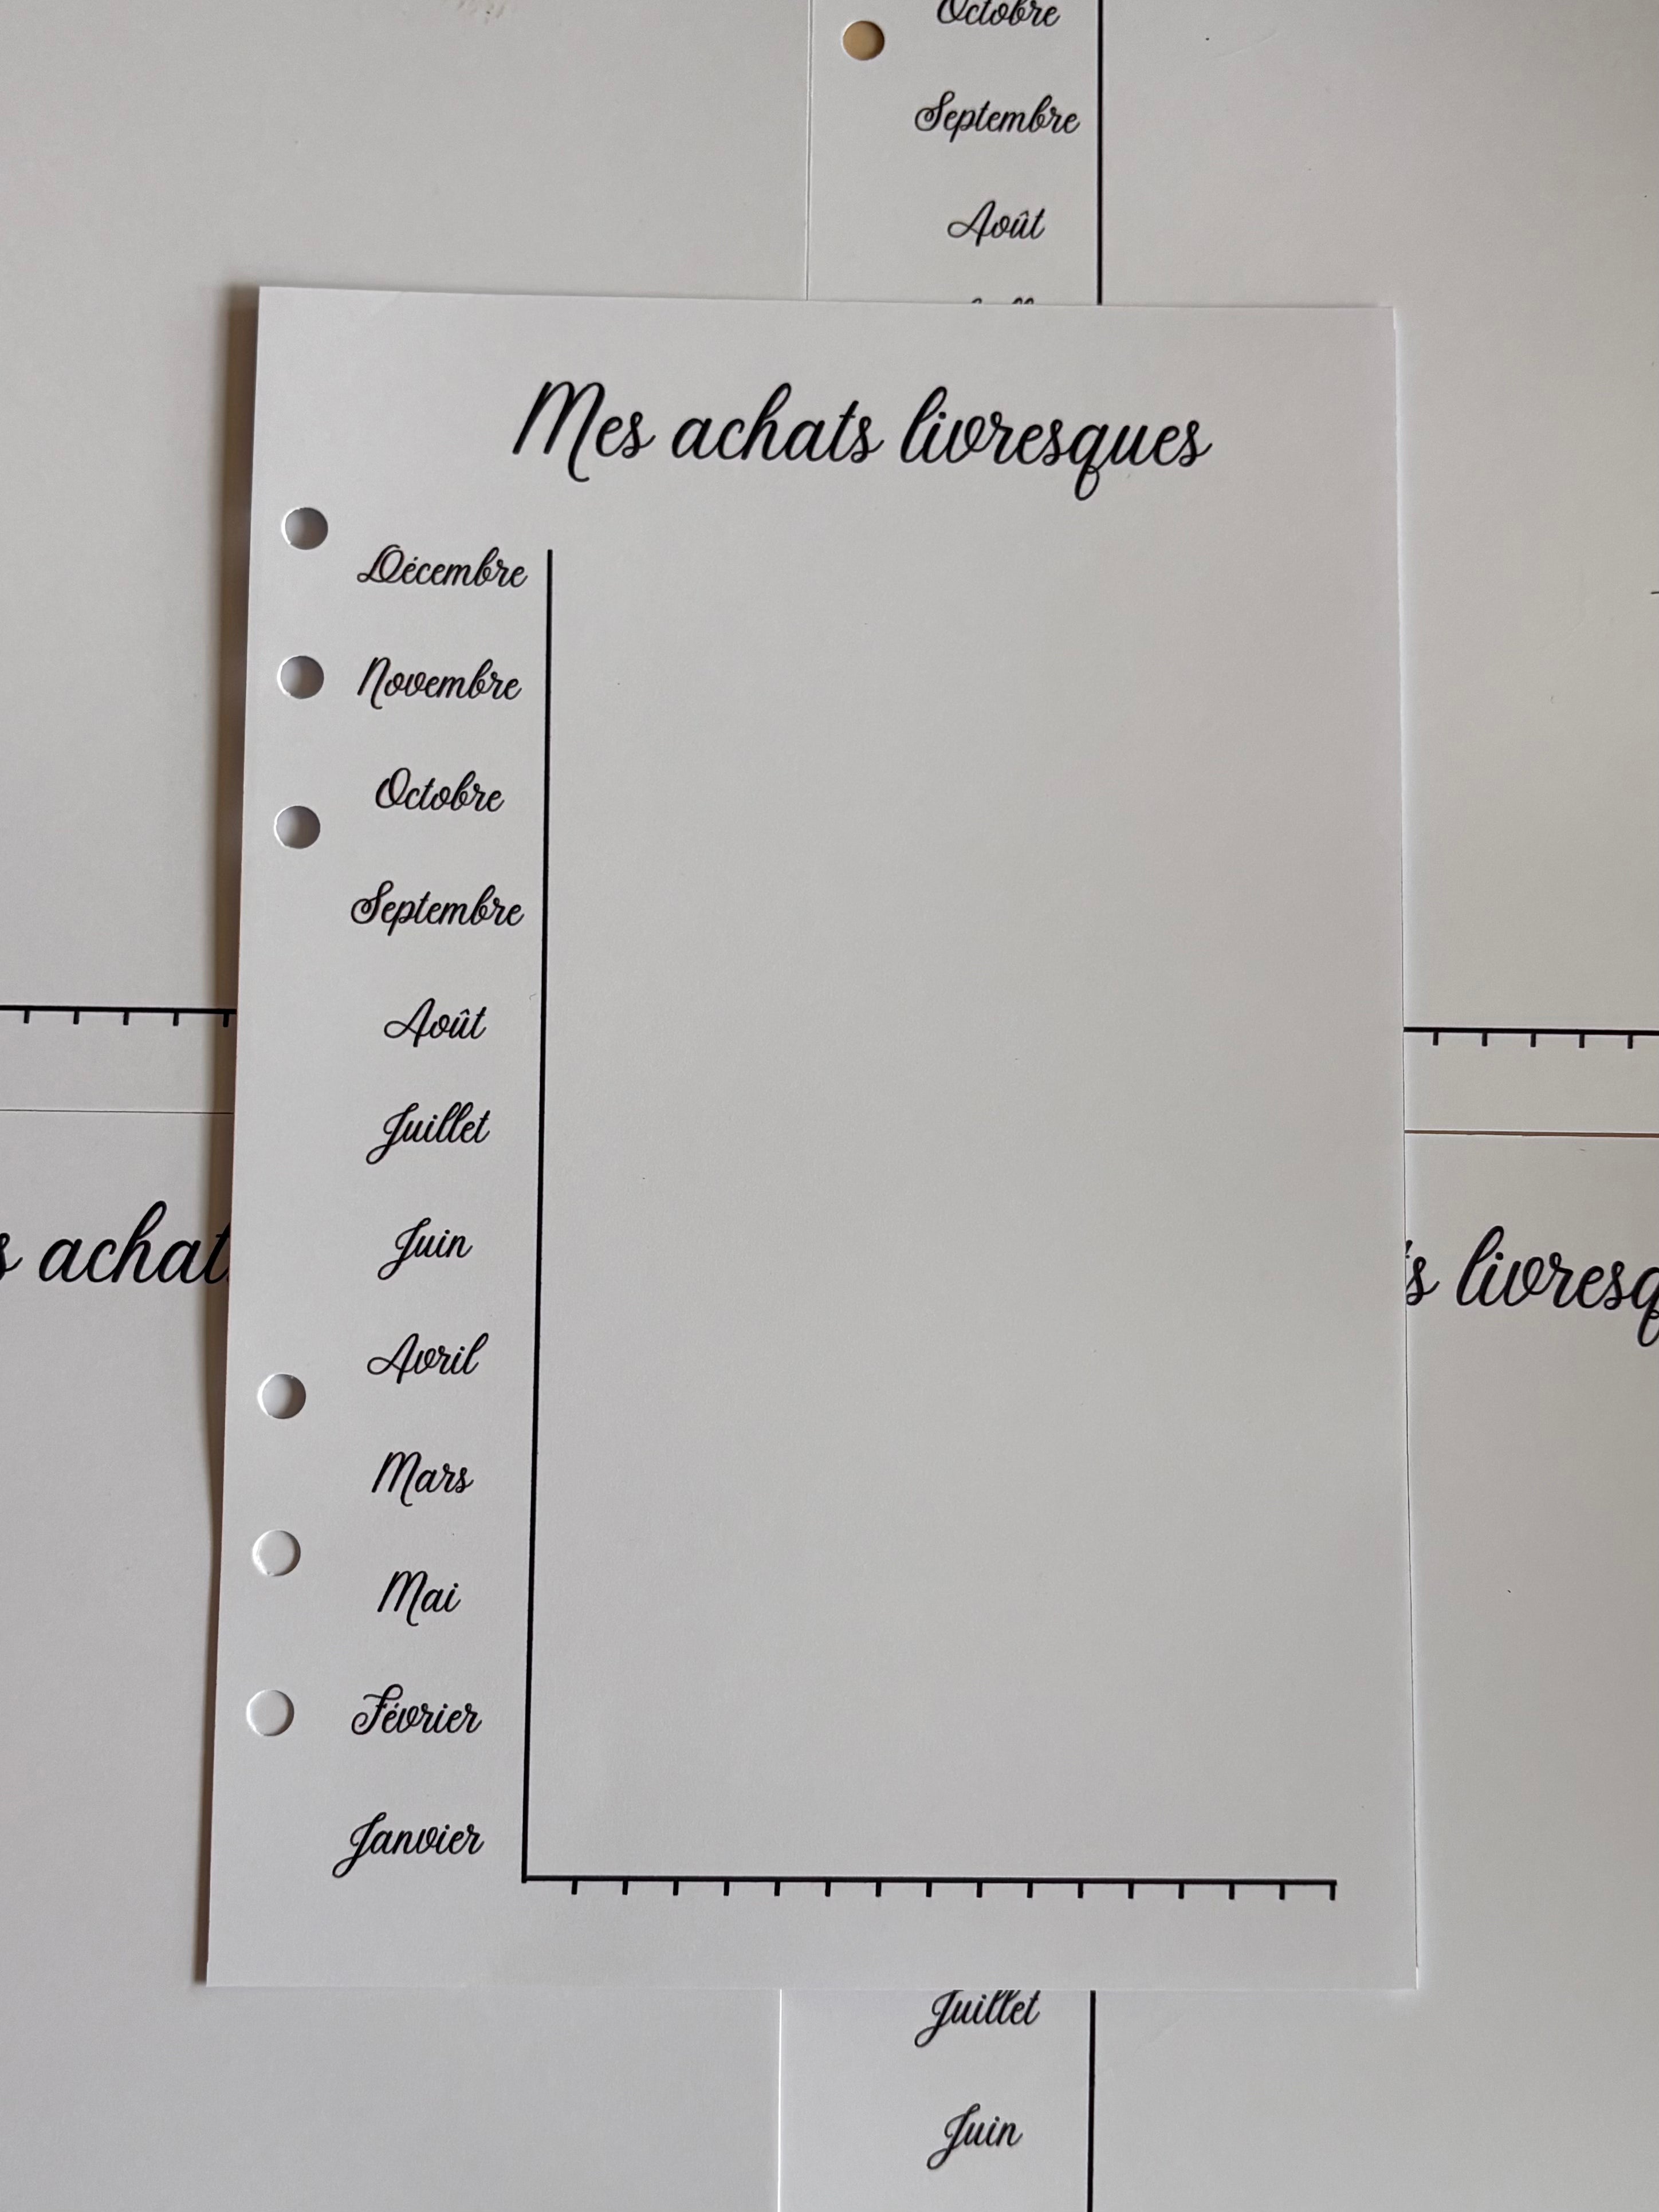 Octobre
Septembre
Août
Mes achats livresques
Décembre
Novembre
Octobre
Septembre
Août
Juillet
Juin
Avril
Mars
Mai
Février
Janvier
s achat
ts livresq
Juillet
Juin